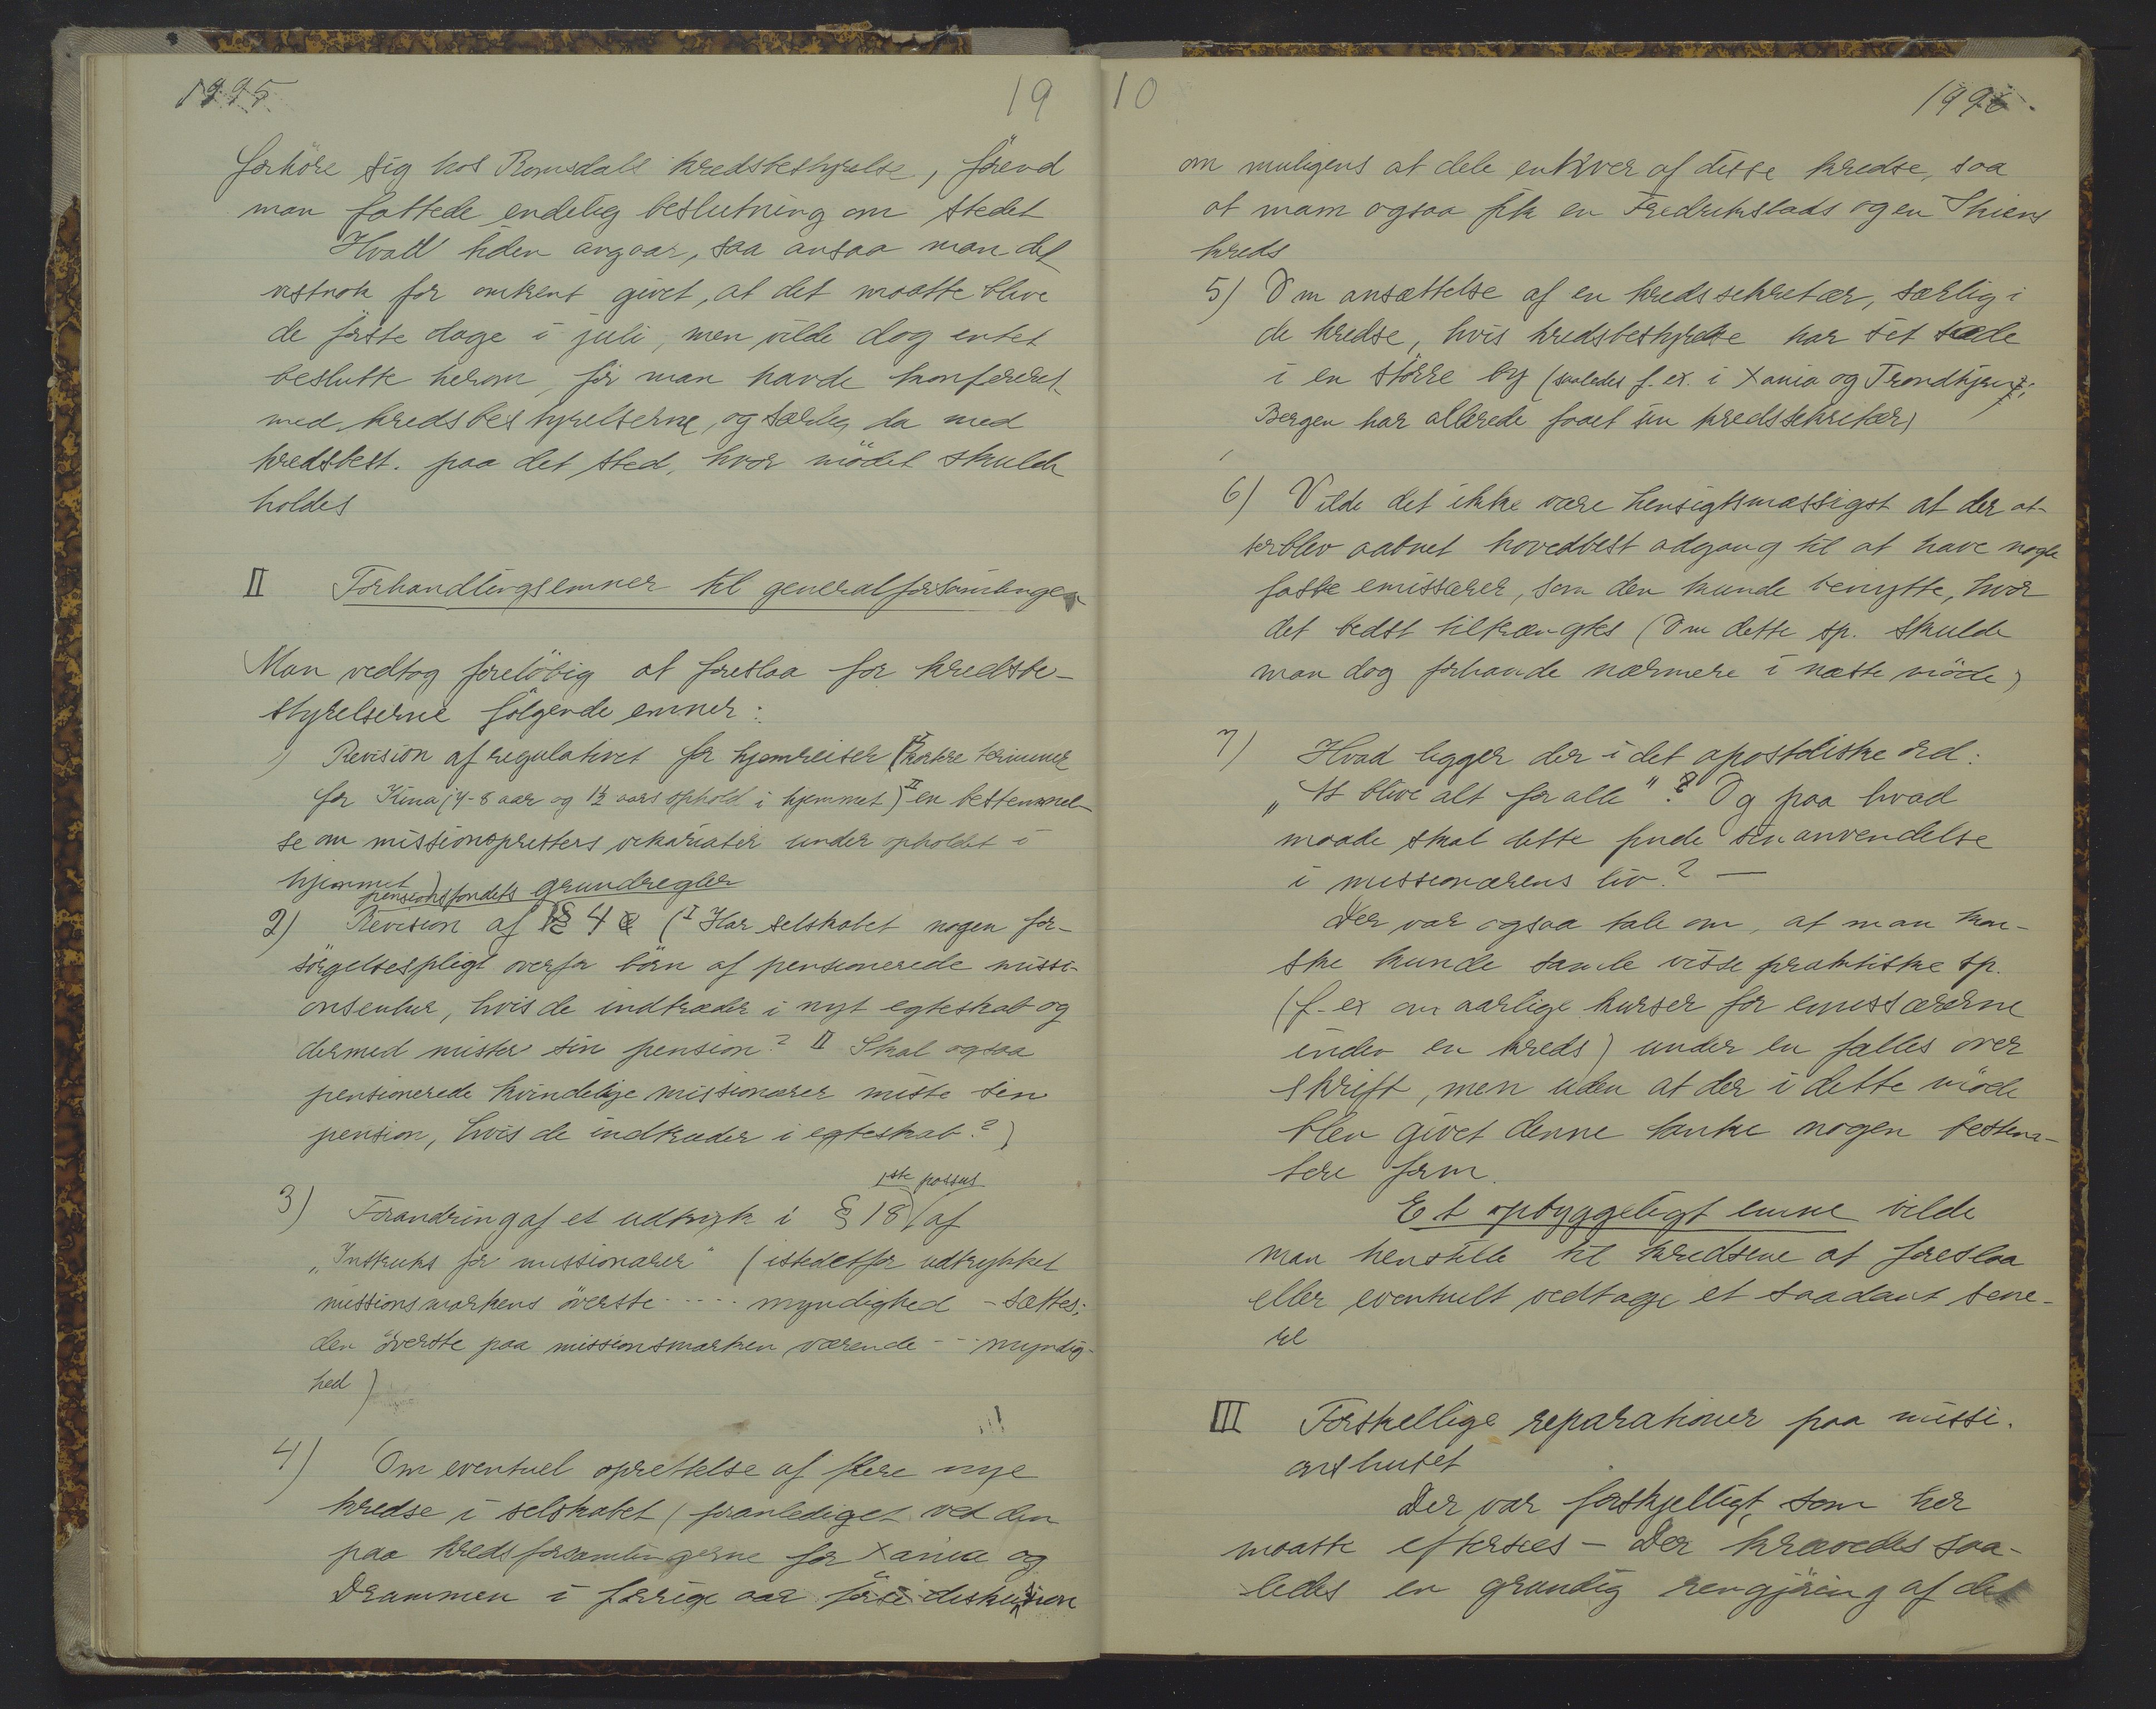 1995
19
forhöre sig hos Romsdals kredsbestyrelse, förend
man fattede endelig beslutning om stedet
Hvad tiden angaar, saa ansaa man det
vistnok for omtrent givet, at det maatte blive
de förste dage i juli, men vilde dog intet
beslutte herom, för man havde konfereret
med kredsbestyrelserne, og særlig da med
kredsbest. paa det sted, hvor mödet skulde
holdes
II Forhandlingsemner til generalforsamlingen
Man vedtog forelöbig at foreslaa for kredsbe-
styrelserne fölgende emner:
1) Revision af regulativet for hjemreiser (I kortere terminer
for Kina (7-8 aar og 1½ aars ophold i hjemmet) II en bestemmel-
se om missionspresters vikariater under opholdet i
hjemmet)
pensionsfondets grundregler
2) Revision af § 4 (I Har selskabet nogen for-
sörgelsespligt overfor börn af pensionerede missi-
onsenker, hvis de indtræder i nyt egteskab og
dermed mister sin pension? II Skal ogsaa
pensionerede kvindelige missionærer miste sin
pension, hvis de indtræder i egteskab?)
1ste passus
3) Forandring af et udtryk i § 18 af
„Instruks for missionærer" (istedetfor udtrykket
missionsmarkens överste ..... myndighed - sættes:
den överste paa missionsmarken værende --- myndig-
hed)
4) Om eventuel oprettelse af flere nye
kredse i selskabet (foranlediget ved den
paa kredsforsamlingerne for Xania og
Drammen i forrige aar förte diskussion
10
1996.
om muligens at dele enhver af disse kredse, saa
at mam ogsaa fik en Fredrikstads og en Skiens
kreds
5) Om ansættelse af en kredssekretær, særlig i
de kredse, hvis kredsbestyrelse har sit sæde
i en större by (saaledes f. ex. i Xania og Trondhjem;
Bergen har allerede faaet sin kredssekretær)
6) Vilde det ikke være hensigtsmæssigst at der at-
ter blev aabnet hovedbest adgang til at have nogle
faste emissærer, som den kunde benytte, hvor
det bedst tiltrængtes (Om dette sp. skulde
man dog forhandle nærmere i næste möde)
7) Hvad ligger der i det apostoliske ord:
„At blive alt for alle"? Og paa hvad
maade skal dette finde sin anvendelse
i missionærens liv? —
Der var ogsaa tale om, at man kan-
ske kunde samle visse praktiske sp.
(f. ex om aarlige kurser for emissærerne
inden en kreds) under en fælles over
skrift, men uden at der i dette möde
blev givet denne tanke nogen bestem-
tere form.
Et opbyggeligt emne vilde
man henstille til kredsene at foreslaa
eller eventuelt vedtage et saadant sene-
re
III Forskellige reparationer paa missi-
onshuset
Der var forskjelligt, som her
maatte eftersees - Der krævedes saa-
ledes en grundig rengjöring af det